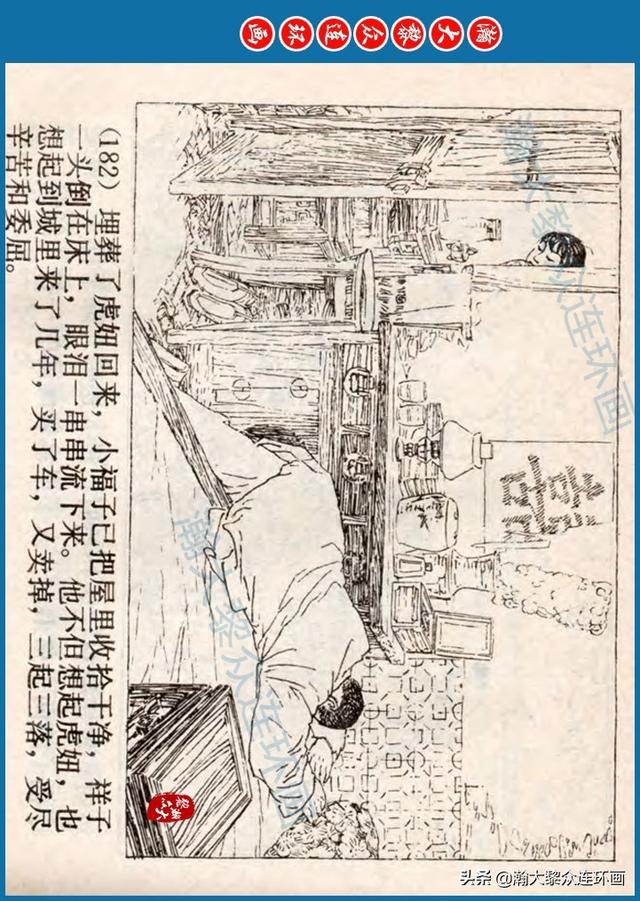 瀚大黎众连环画
喜
瀚大黎众连环画
瀚大黎众连环画
(182) 埋葬了虎妞回来，小福子已把屋里收拾干净，祥子
一头倒在床上，眼泪一串串流下来。他不但想起虎妞，也
想起到城里来了几年，买了车，又卖掉，三起三落，受尽
辛苦和委屈。
头条 @瀚大黎众连环画